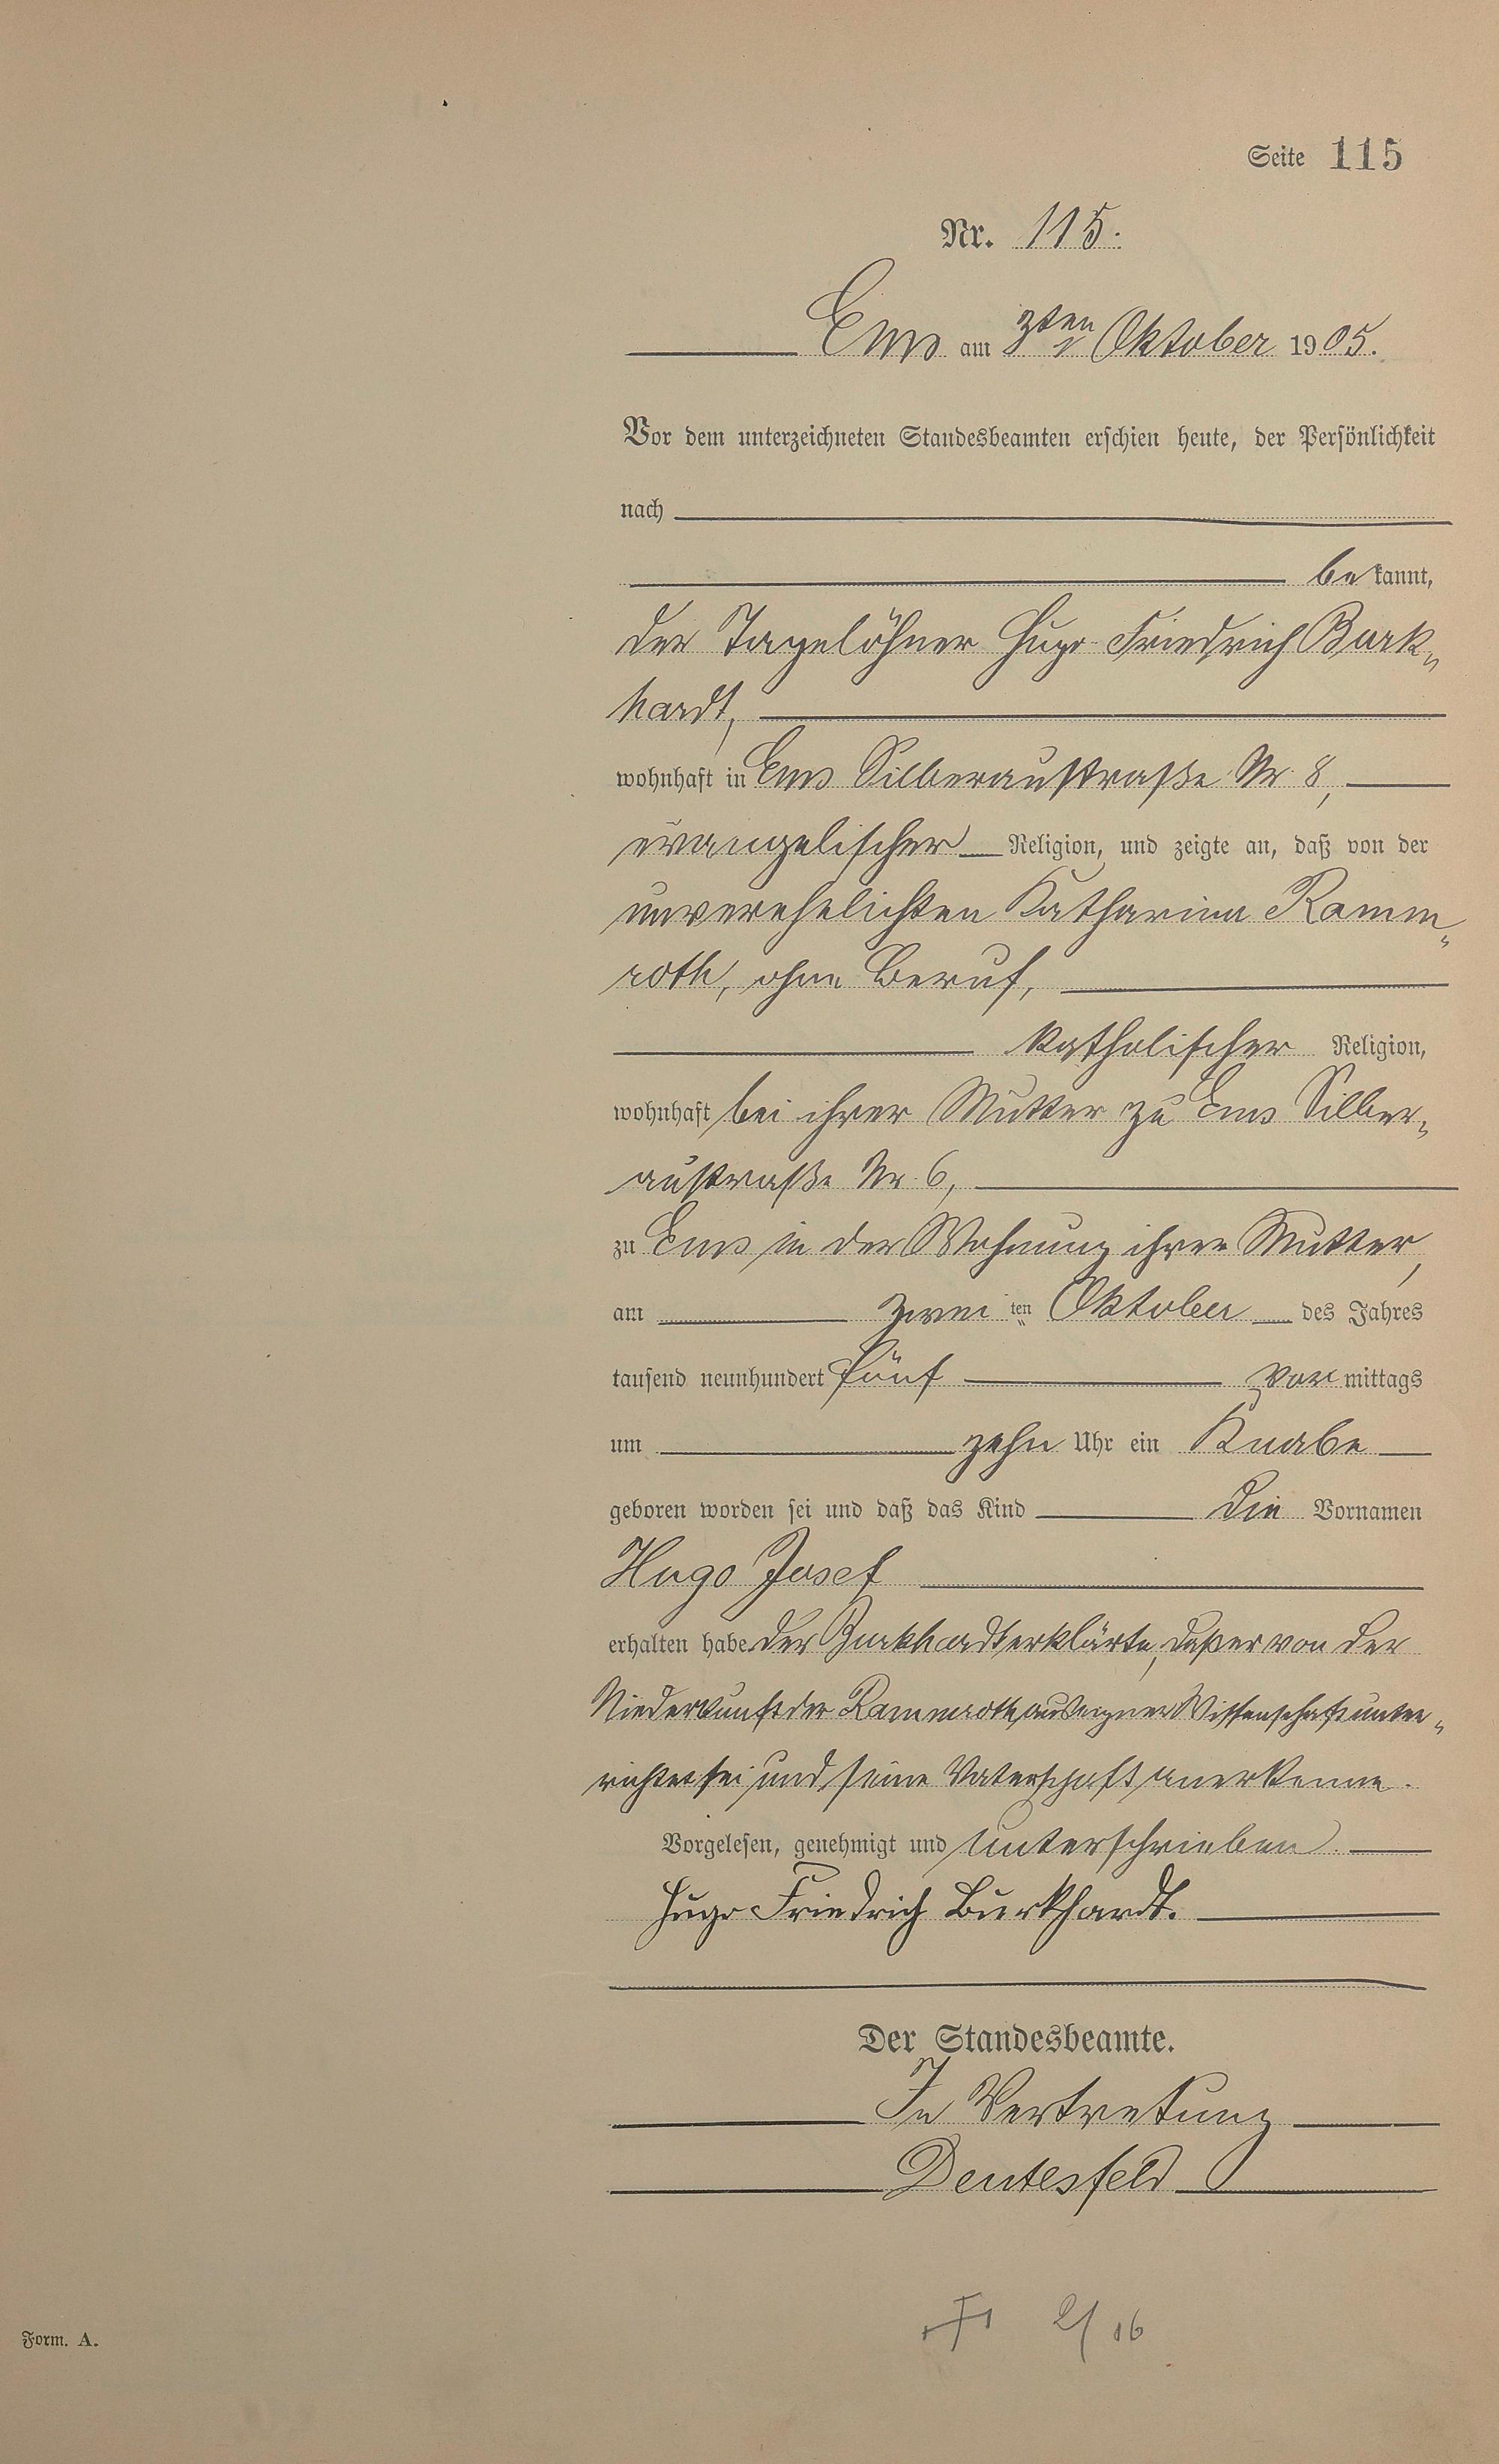 Seite 115
Nr. 115.
Ems am 3ten Oktober 1905.
Vor dem unterzeichneten Standesbeamten erschien heute, der Persönlichkeit
nach
bekannt,
der Tagelöhner Hugo Friedrich Burk„
hardt,
wohnhaft in Ems Silberaustraße Nr. 8,
evangelischer Religion, und zeigte an, daß von der
unverehelichten Katharina Ramm„
roth, ohne Beruf,
katholischer Religion,
wohnhaft bei ihrer Mutter zu Ems Silber„
austraße Nr. 6,
zu Ems in der Wohnung ihrer Mutter,
am zweiten Oktober des Jahres
tausend neunhundert fünf vormittags
um zehn Uhr ein Knabe
geboren worden sei und daß das Kind die Vornamen
Hugo Josef
erhalten habe. Der Burkhardt erklärte, daß er von der
Niederkunft der Rammroth aus eigner Wissenschaft unter„
richtet sei und seine Vaterschaft anerkenne.
Vorgelesen, genehmigt und unterschrieben.
Hugo Friedrich Burkhardt.
Der Standesbeamte.
In Vertretung
Deutesfeld
Form. A.